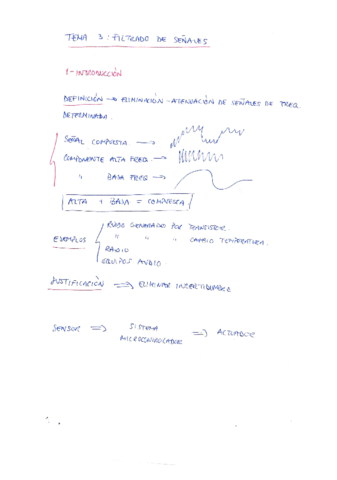 TEMA 3: FILTRADO DE SEÑALES
1- INTRODUCCIÓN
DEFINICIÓN → ELIMINACIÓN - ATENUACIÓN DE SEÑALES DE FREQ.
DETERMINADA.
SEÑAL COMPUESTA →
COMPONENTE ALTA FREQ. →
" BAJA FREQ →
ALTA + BAJA = COMPUESTA
EJEMPLOS
RUIDO GENERADO POR TRANSISTOR
" " " CAMBIO TEMPERATURA.
RADIO
EQUIPOS AUDIO
JUSTIFICACIÓN ⇒ ELIMINAR INCERTIDUMBRE
SENSOR ⇒ SISTEMA MICROCONTROLADOR ⇒ ACTUADOR